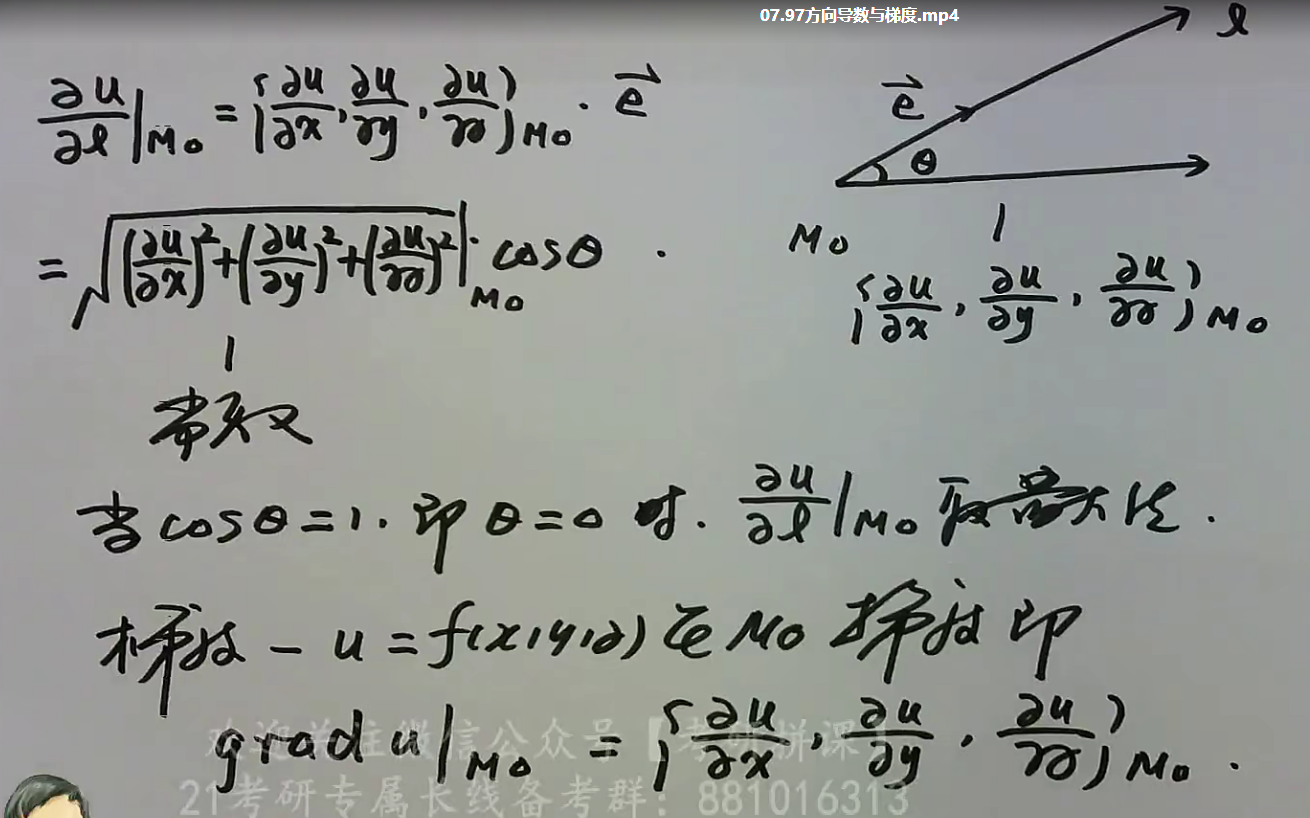 07.97方向导数与梯度.mp4
∂u/∂l|M₀ = {∂u/∂x, ∂u/∂y, ∂u/∂z}M₀ · e⃗
= √((∂u/∂x)²+(∂u/∂y)²+(∂u/∂z)²)|M₀ · cosθ .
常数
l
e⃗
θ
M₀
{∂u/∂x, ∂u/∂y, ∂u/∂z}M₀
当 cosθ=1. 即 θ=0 时. ∂u/∂l|M₀ 取最大值.
梯度 — u = f(x,y,z) 在 M₀ 梯度即
grad u|M₀ = {∂u/∂x, ∂u/∂y, ∂u/∂z}M₀ .
欢迎关注微信公众号【考研拼课】
21考研专属长线备考群：881016313